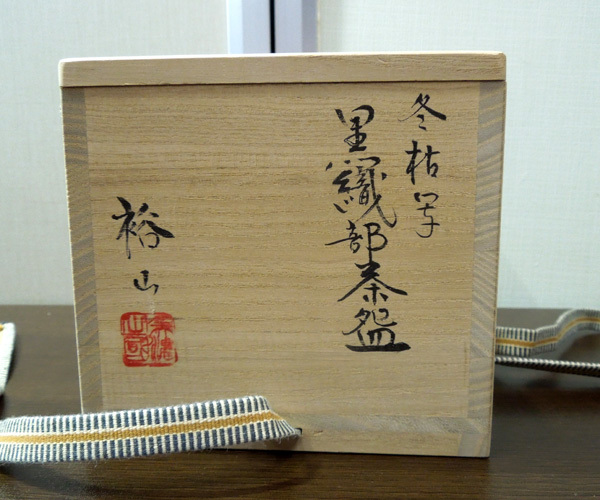 冬枯写
黒織部茶盌
裕山